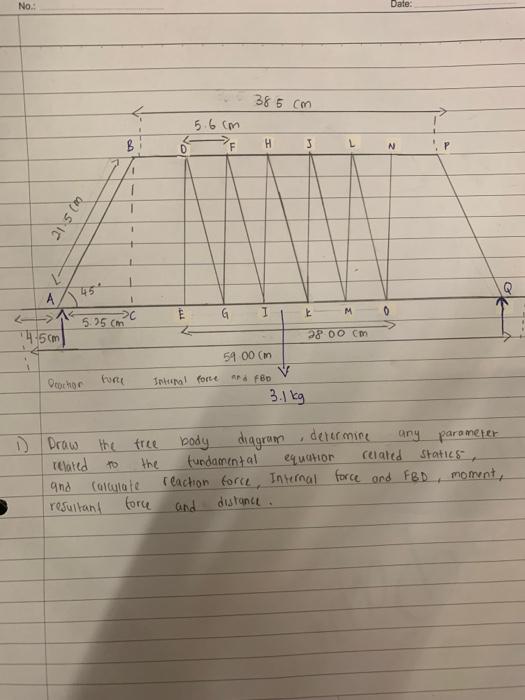 No.:
Date:
38 5 cm
5.6 cm
B D F H J L N P
21.5 cm
45°
A Q
C E G I K M O
5.25 cm
4.5cm
28.00 cm
59.00 cm
Reaction force Internal force and FBD
3.1 kg
i) Draw the free body diagram, determine any parameter
related to the fundamental equation related statics,
and calculate reaction force, Internal force and FBD, moment,
resultant force and distance.